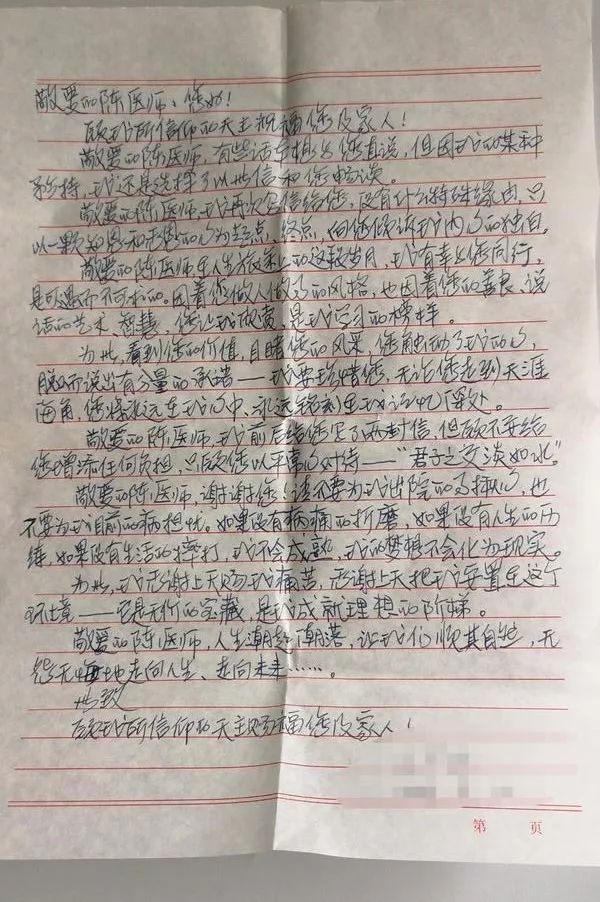 敬爱的陈医师,您好!
愿我所信仰的天主祝福您及家人!
敬爱的陈医师,有些话真想与您直说,但因我的某种
矜持,我还是选择了以此信和您畅谈。
敬爱的陈医师,我再次写信给您,没有什么特殊缘由,只
以一颗知恩和感恩的心为起点、终点,向您倾诉我内心的独白。
敬爱的陈医师,在人生旅案上的这段岁月,我有幸与您同行,
是可遇而不可求的。因着您做人做事的风格,也因着您的善良、说
话的艺术、智慧,您让我敬贵,是我学习的榜样。
为此,看到您的价值,目睹您的风采,您触动了我的心,
脱口而说出有分量的承诺——我要珍惜您,无论您走到天涯
海角,您将永远在我心中、永远铭刻在我记忆深处。
敬爱的陈医师,我前后给您写了两封信,但愿不要给
您增添任何负担,只愿您以平常心对待——“君子之交淡如水”。
敬爱的陈医师,谢谢您,请不要为我出院的事操心,也
不要为我目前的病担忧。如果没有病痛的折磨,如果没有人生的历
练,如果没有生活的摔打,我不会成熟,我的梦想不会化为现实。
为此,我感谢上天赐我痛苦,感谢上天把我安置在这个
环境——它是无价的宝藏,是我成就理想的阶梯。
敬爱的陈医师,人生潮起潮落,让我们顺其自然,无
怨无悔地走向人生、走向未来……。
此致
愿我所信仰的天主赐福您及家人!
第 页